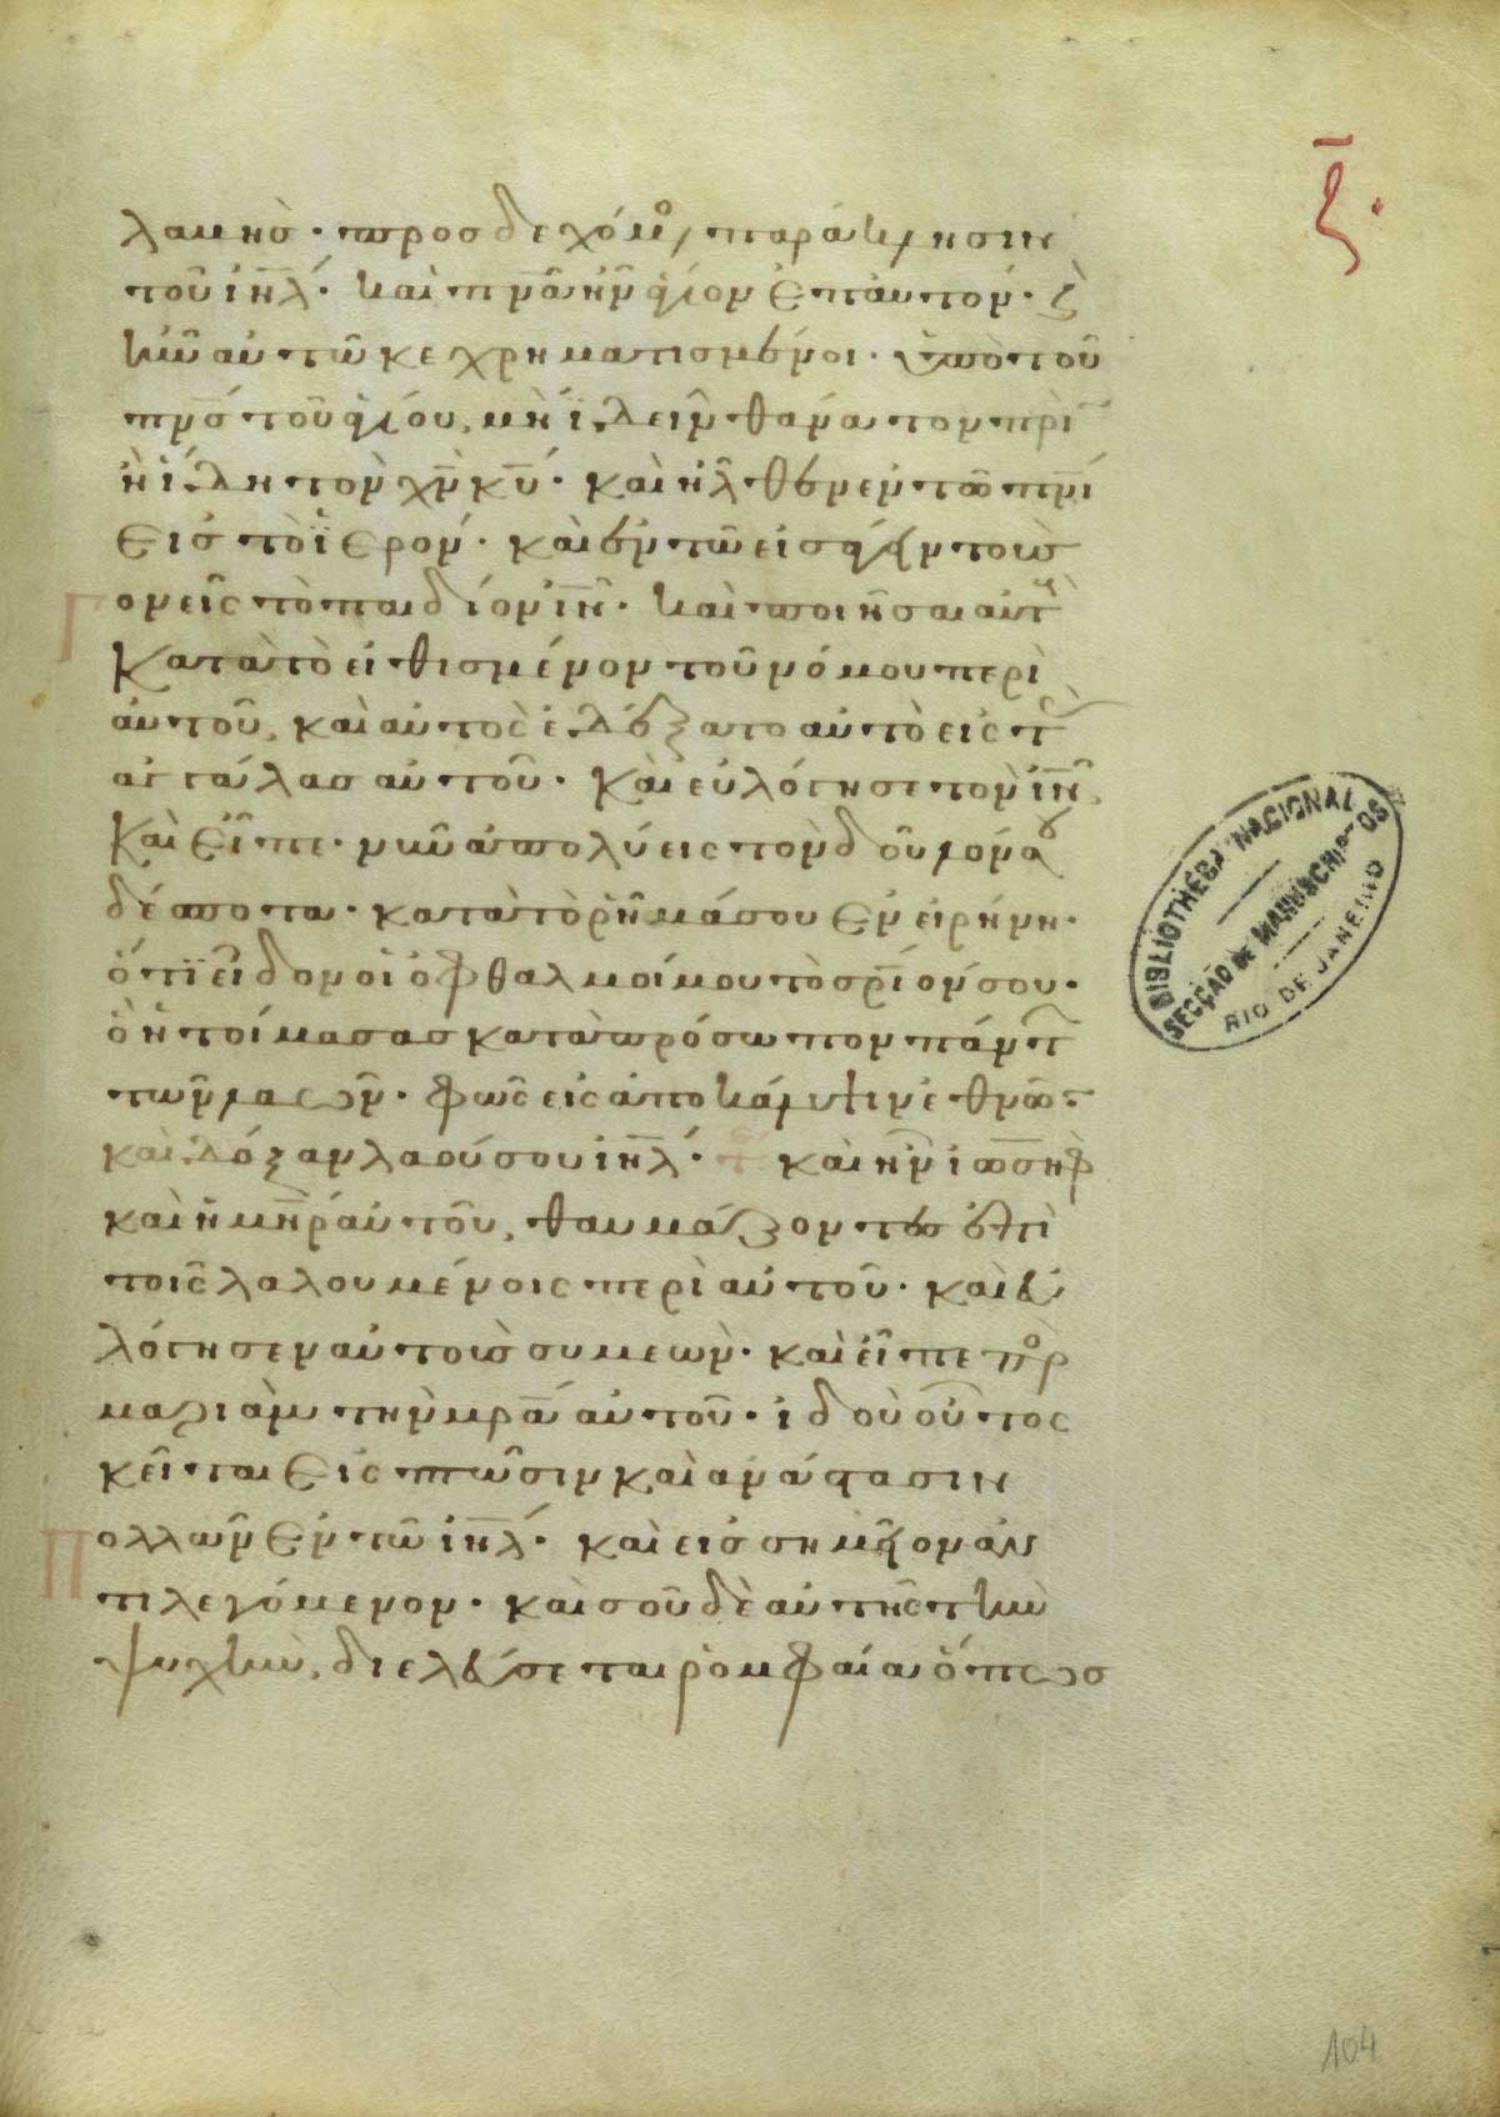 ξ.
λαβησ· προσδεχόμο/ παράκλησιν
τοῦ ἰηλ́· καὶ πνᾶ ἦν ἅγιον ἐπ' αὐτόν· ζ
ἦν αὐτῶ κεχρηματισμένον· ὑπὸ τοῦ
πνσ τοῦ ἁγίου, μὴ ἰδεῖν θάνατον πρὶν
ἢ ἴδη τὸν χν κυ· καὶ ἦλθεν ἐν τῶ πνι
εἰς τὸ ἱερόν· καὶ ἐν τῶ εἰσαγαγεῖν τοὺσ
Γονεῖς τὸ παιδίον ιν· καὶ ποιῆσαι αὐτ
κατὰ τὸ εἰθισμένον τοῦ νόμου περὶ
αὐτοῦ, καὶ αὐτὸς ἐδέξατο αὐτὸ εἰς τ
ἀγκάλασ αὐτοῦ· καὶ εὐλόγησε τὸν θν
καὶ εἶπε· νῦν ἀπολύεις τὸν δοῦλόν σου
δέσποτα· κατὰ τὸ ῥῆμά σου ἐν εἰρήνη·
ὅτι εἶδον οἱ ὀφθαλμοί μου τὸ σριόν σου·
ὃ ἡτοίμασας κατὰ πρόσωπον πάντ
τῶν λαῶν· φῶς εἰς ἀποκάλυψιν ἐθνῶ
καὶ δόξαν λαοῦ σου ἰηλ́· τ καὶ ἦν ἰωσὴφ
καὶ ἡ μηρ αὐτοῦ, θαυμάζοντες ἐπὶ
τοῖς λαλουμένοις περὶ αὐτοῦ· καὶ εὐ
λόγησεν αὐτοὺσ συμεών· καὶ εἶπε πρ
μαριὰμ τὴν μρα αὐτοῦ· ἰδοὺ οὗτος
κεῖται εἰς πτῶσιν καὶ ἀνάστασιν
Πολλῶν ἐν τῶ ἰηλ́· καὶ εἰς σημεῖον ἀν
τιλεγόμενον· καὶ σοῦ δὲ αὐτῆς τὴν
ψυχὴν, διελεύσεται ῥομφαία ὅπωσ
BIBLIOTHECA NACIONAL
SECÇÃO DE MANUSCRIPTOS
RIO DE JANEIRO
104